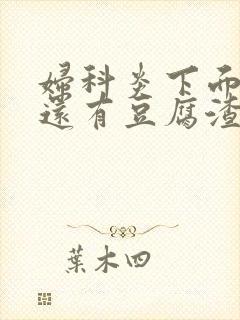 婦科炎下面
還有豆腐渣
葉木四